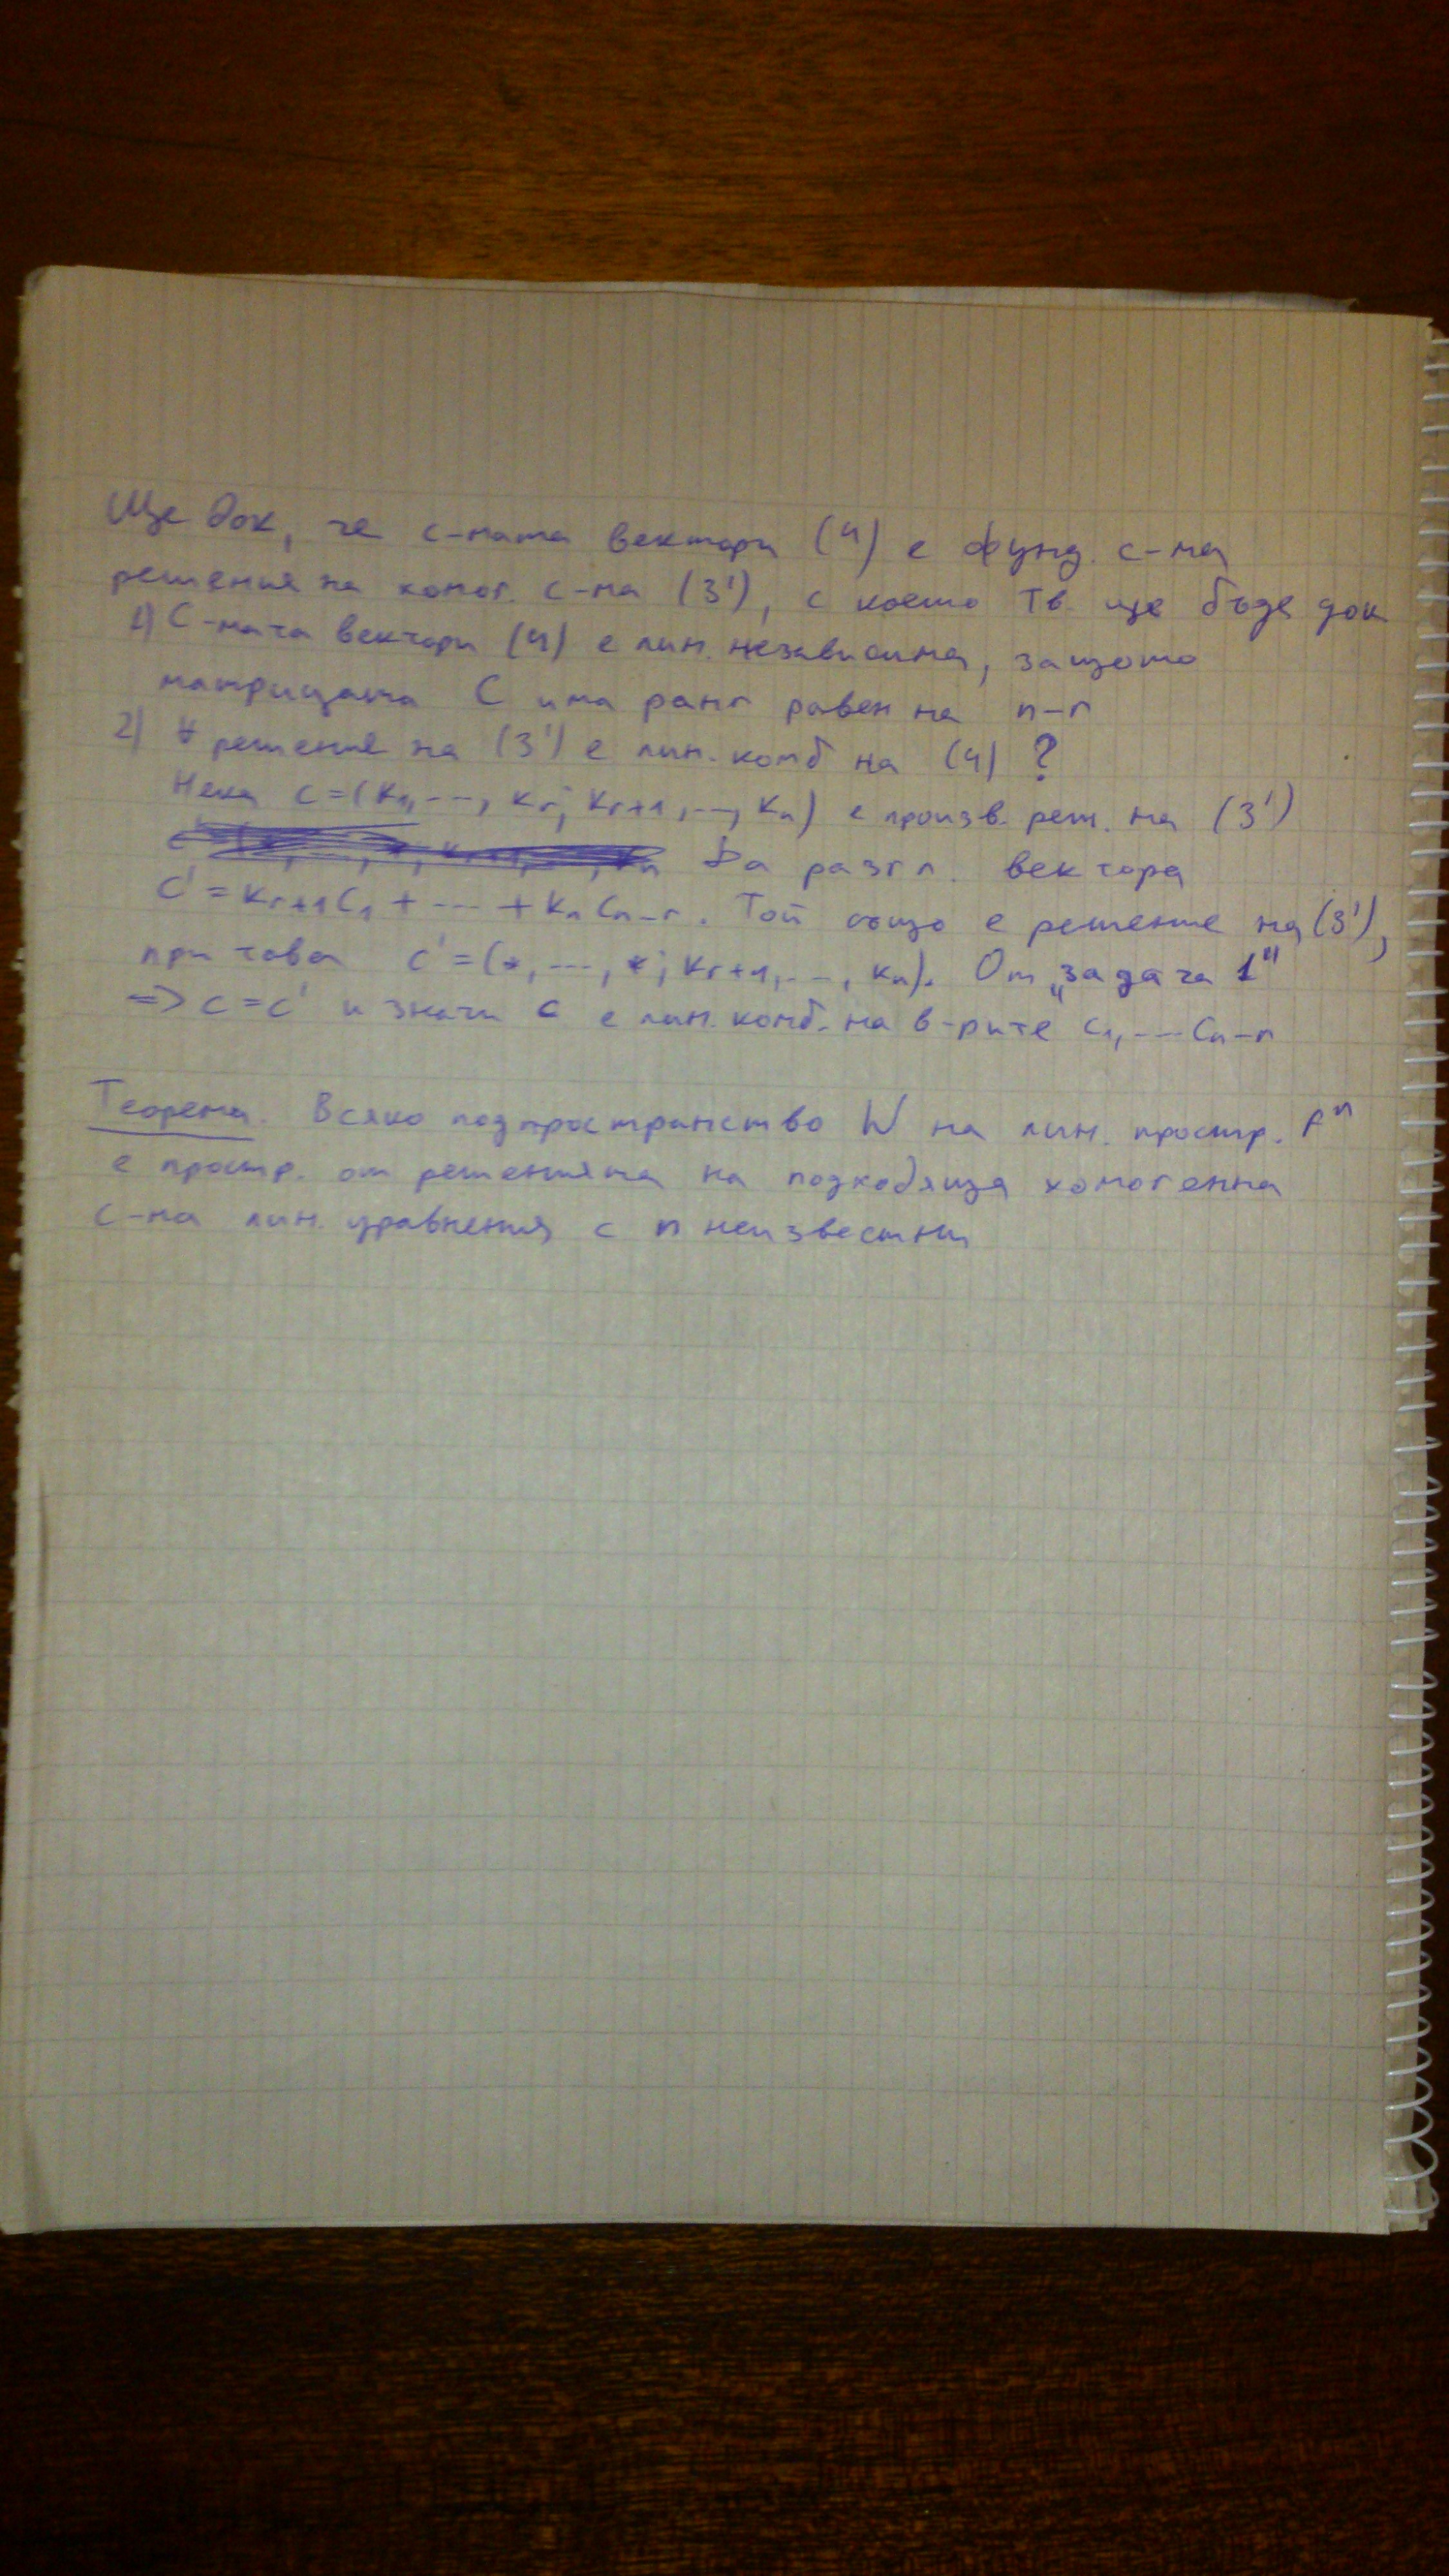 Ще док, че с-мата вектори (4) е фунд. с-ма
решения на хомог. с-ма (3'), с което Тв. ще бъде док
1) С-мата вектори (4) е лин. независима, защото
матрицата C има ранг равен на n-r
2) ∀ решение на (3') е лин. комб на (4) ?
Нека c=(k₁,---, kᵣ; kᵣ₊₁,..., kₙ) е произв. реш. на (3')
Да разгл. вектора
c' = kᵣ₊₁c₁ + --- + kₙcₙ₋ᵣ. Той също е решение на (3'),
при това c'=(*,---,*; kᵣ₊₁,..., kₙ). От „задача 1"
=> c=c' и значи c е лин. комб. на в-рите c₁,---cₙ₋ᵣ
Теорема. Всяко подпространство W на лин. простр. Fⁿ
е простр. от решенията на подходяща хомогенна
с-ма лин. уравнения с n неизвестни